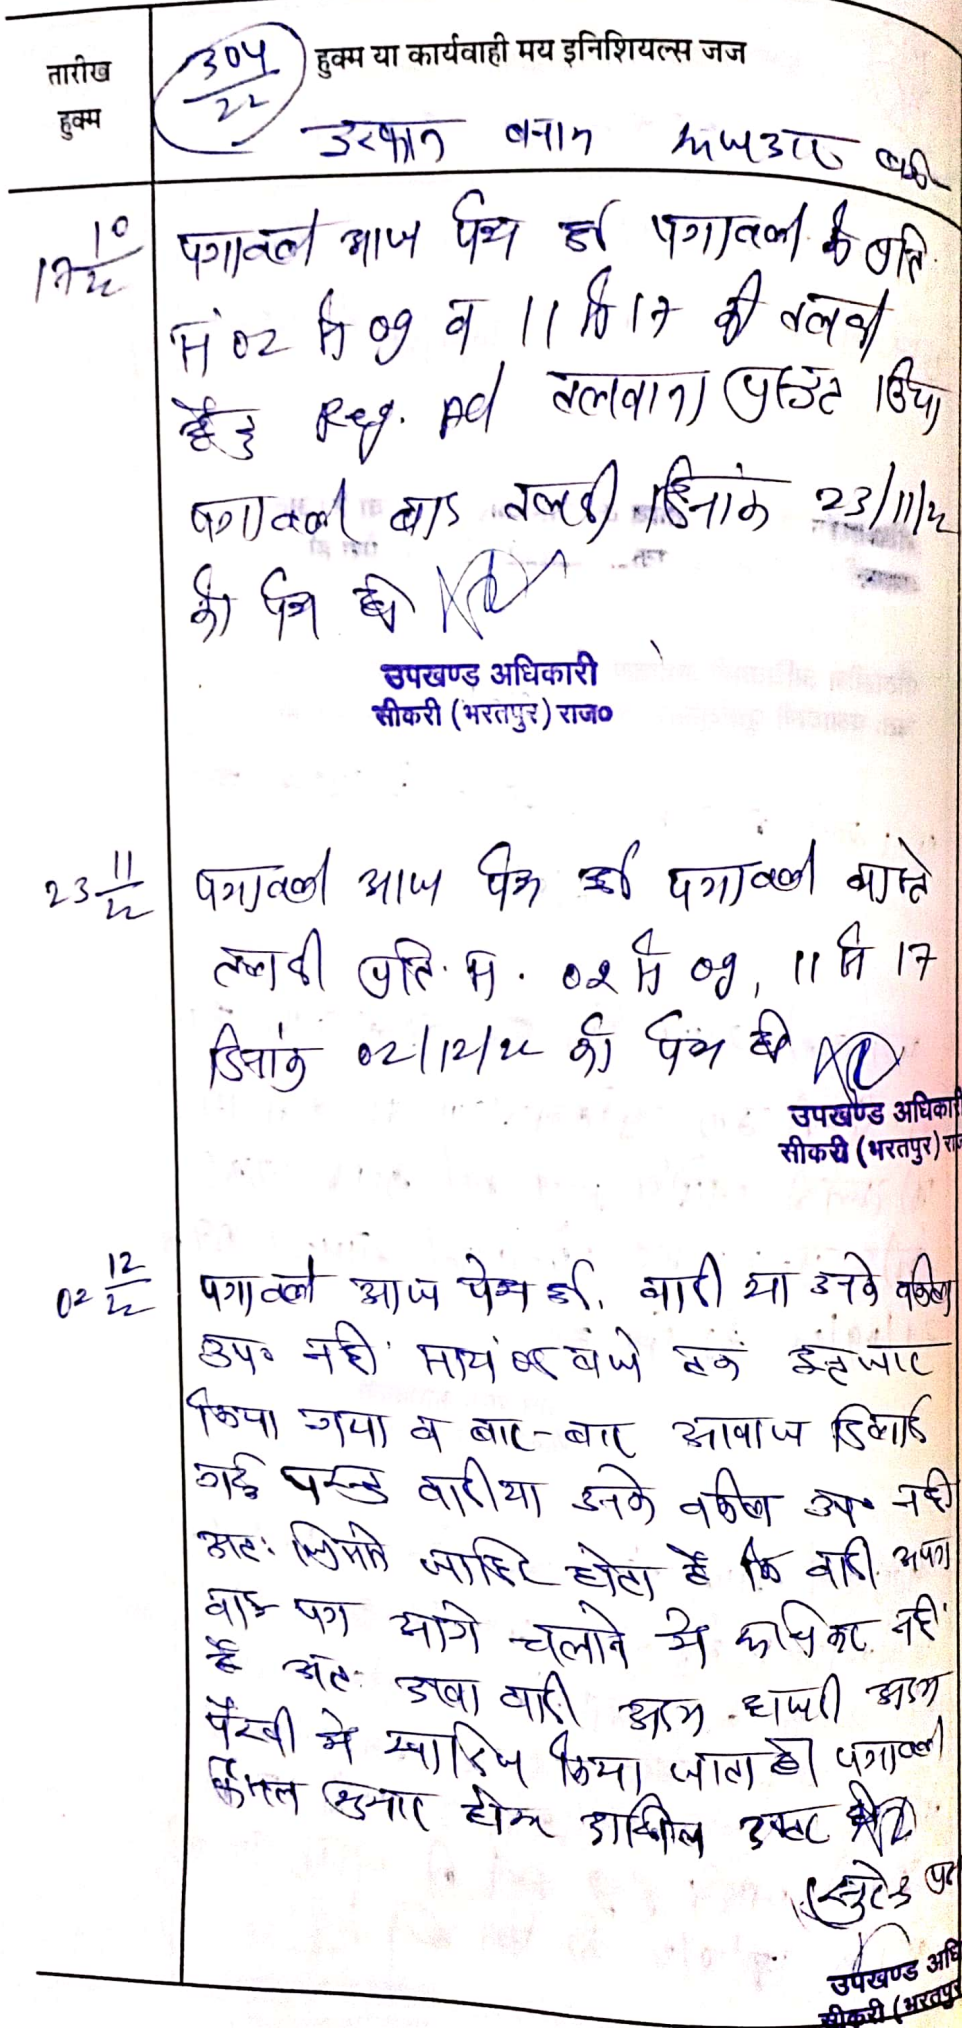 तारीख
हुक्म
304/22 हुक्म या कार्यवाही मय इनिशियल्स जज
उरफान बनाम
17 10/22 पत्रावली आज पेश हुई पत्रावली के प्रति
सं 02 से 09 व 11 से 17 की तलबी
हेतु Reg. AD तलवाना प्रस्तुत किया
पत्रावली बाद तलबी दिनांक 23/11/22
को पेश हो
उपखण्ड अधिकारी
सीकरी (भरतपुर) राज०
23 11/22 पत्रावली आज पेश हुई पत्रावली वास्ते
तलबी प्रति. सं. 02 से 09, 11 से 17
दिनांक 02/12/22 को पेश हो
उपखण्ड अधिकारी
सीकरी (भरतपुर)
02 12/22 पत्रावली आज पेश हुई. वादी या उनके वकील
उप० नहीं सायं बजे तक इन्तजार
किया गया व बार-बार आवाज दिलाई
गई परन्तु वादी या उनके वकील उप० नहीं
अतः जाहिर होता है कि वादी अपना
वाद पत्र आगे चलाने में नहीं
है अतः दावा वादी अदम हाजरी अदम
पैरवी में खारिज किया जाता है। पत्रावली
फैसल शुमार होकर दाखिल दफ्तर हो
उपखण्ड अधि
सीकरी (भरतपुर